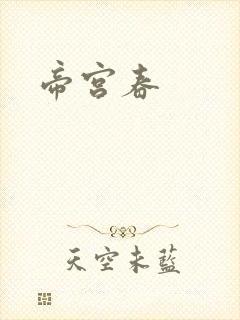 帝宫春
天空未藍